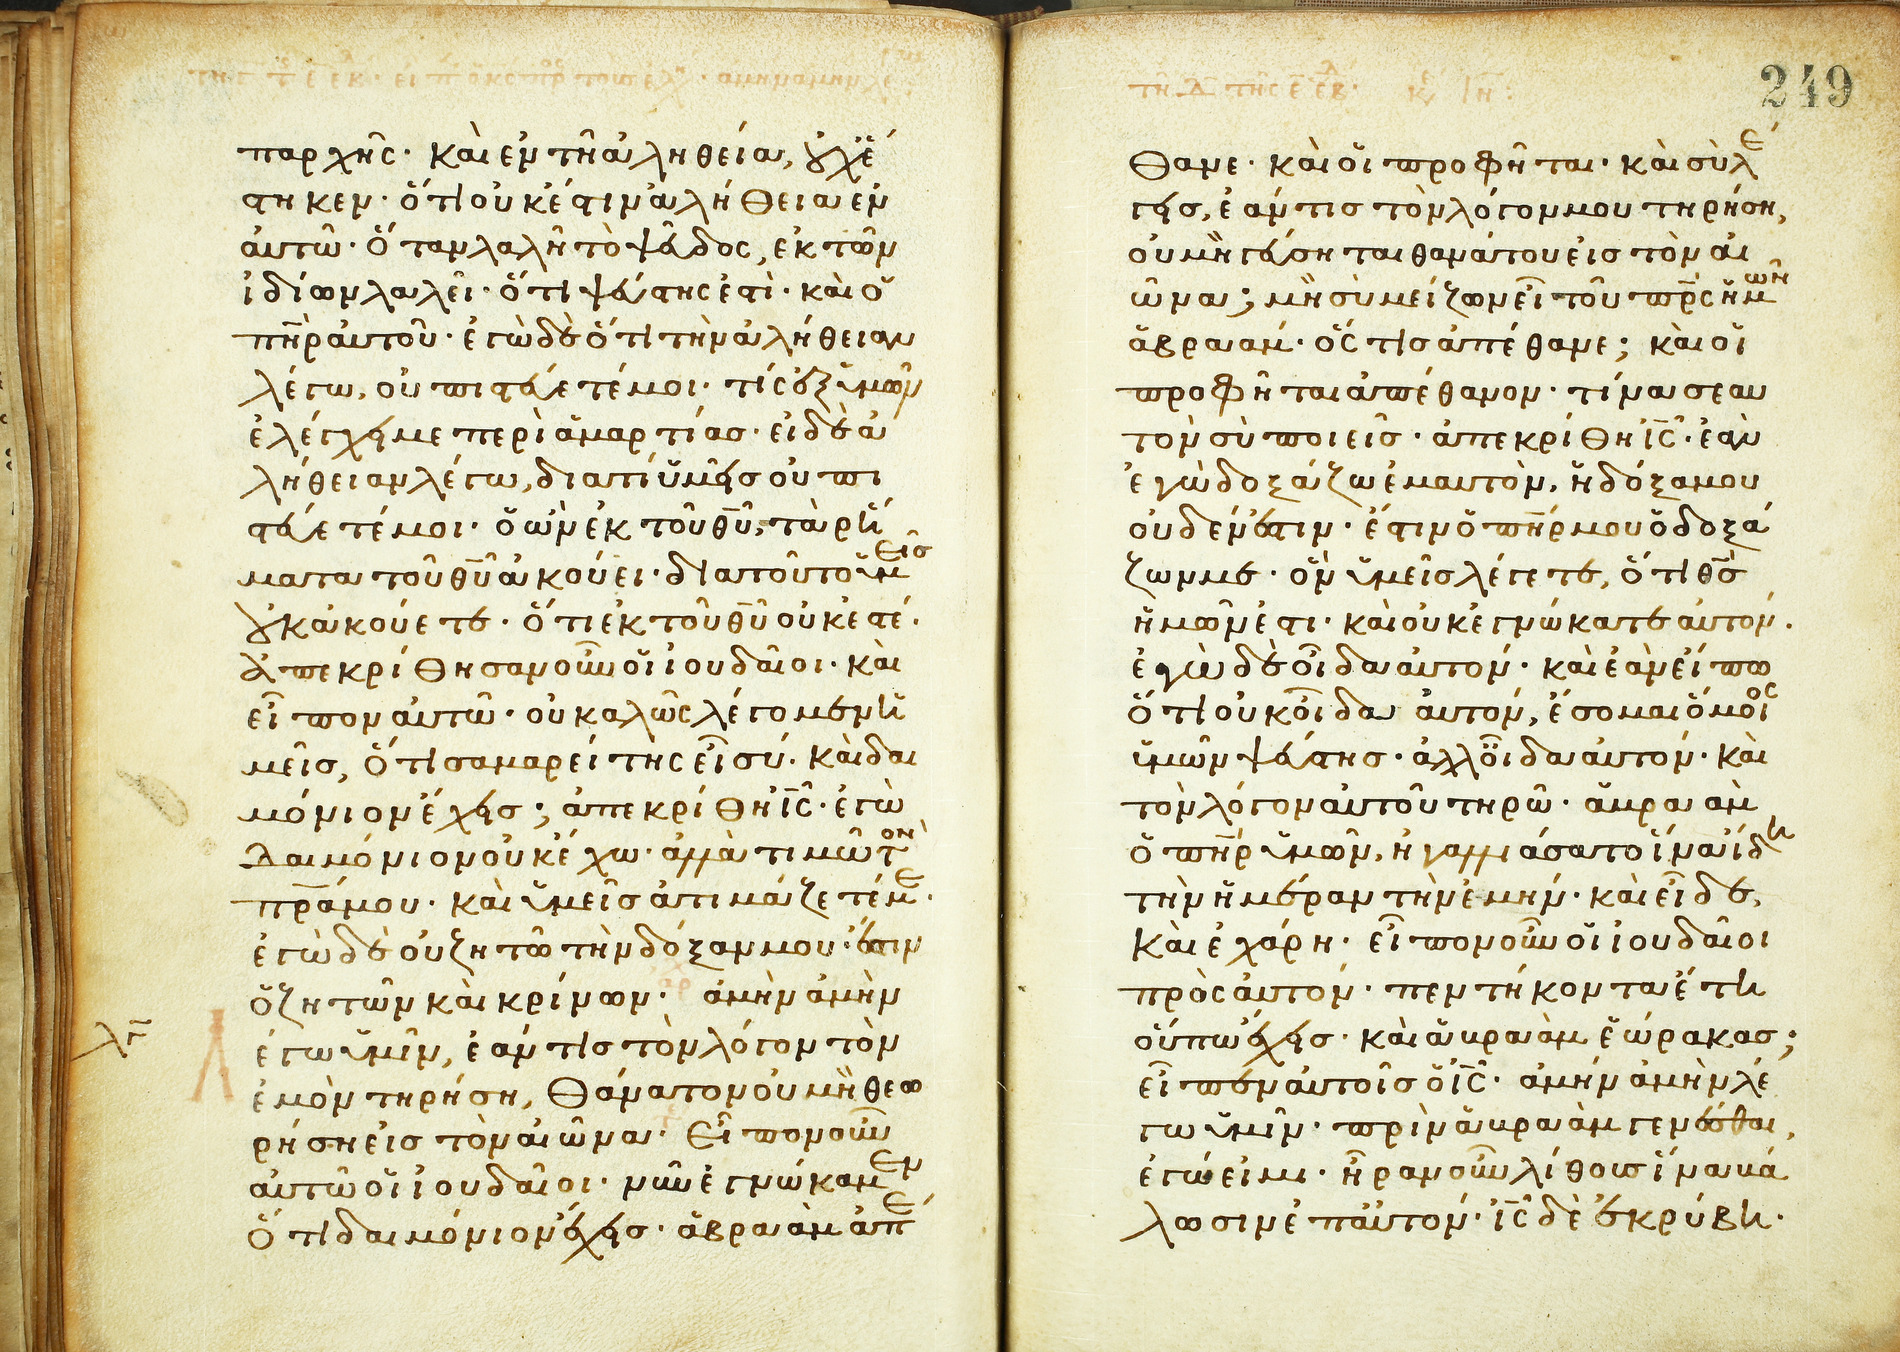 παρχῆς· καὶ ἐν τῆ ἀληθεία, οὐχ ἕ
στηκεν· ὅτι οὐκ ἔστιν ἀλήθεια ἐν
ἀυτῶ· ὅταν λαλῆ τὸ ψεῦδος, ἐκ τῶν
ἰδίων λαλεῖ· ὅτι ψεύστης ἐστὶ· καὶ ὁ
πη̅ρ ἀυτοῦ· ἐγὼ δὲ ὅτι τὴν ἀλήθειαν
λέγω, οὐ πιστεύετέ μοι· τίς ἐξ ὑμῶν
ἐλέγχει με περὶ ἁμαρτίασ· εἰ δὲ ἀ
λήθειαν λέγω, διατί ὑμεῖσ οὐ πι
στεύετέ μοι· ὁ ὢν ἐκ τοῦ θ̅υ̅, τὰ ρή
ματα τοῦ θ̅υ̅ ἀκούει· διατοῦτο ὑμεῖσ
οὐκ ἀκούετε· ὅτι ἐκ τοῦ θ̅υ̅ οὐκ ἐστέ·
ἀπεκρίθησαν οὖν οἱ ἰουδαῖοι· καὶ
εἶπον ἀυτῶ· οὐ καλῶς λέγομεν ἡ
μεῖσ, ὅτι σαμαρείτης εἶ σύ· καὶ δαι
μόνιον ἔχεισ; ἀπεκρίθη ι̅ς̅· ἐγὼ
δαιμόνιον οὐκ ἔχω· ἀλλὰ τιμῶ τὸν
πρ̅α μου· καὶ ὑμεῖσ ἀτιμάζετέ με·
ἐγὼ δὲ οὐ ζητῶ τὴν δόξαν μου· ἔστιν
ὁ ζητῶν καὶ κρίνων· ἀμὴν ἀμὴν
λέγω ὑμῖν, ἐάν τισ τὸν λόγον τὸν
ἐμὸν τηρήση, θάνατον οὐ μὴ θεω
ρήση εἰσ τὸν αἰῶνα· εἶπον οὖν
ἀυτῶ οἱ ἰουδαῖοι· νῦν ἐγνώκαμεν
ὅτι δαιμόνιον ἔχεισ· ἀβραὰμ ἀπέ
249
θανε· καὶ οἱ προφῆται· καὶ σὺ λέ
γεισ, ἐάν τισ τὸν λόγον μου τηρήση,
οὐ μὴ γεύσηται θανάτου εἰσ τὸν αἰ
ῶνα; μὴ σὺ μείζων εἶ τοῦ πρ̅ς ἡμῶν
ἀβραάμ· ὅς τισ ἀπέθανε; καὶ οἱ
προφῆται ἀπέθανον· τίνα σεαυ
τὸν σὺ ποιεῖσ· ἀπεκρίθη ι̅ς̅· ἐὰν
ἐγὼ δοξάζω ἐμαυτὸν, ἡ δόξα μου
οὐδέν ἐστιν· ἔστιν ὁ πη̅ρ μου ὁ δοξά
ζων με· ὃν ὑμεῖσ λέγετε, ὅτι θ̅σ̅
ἡμῶν ἐστι· καὶ οὐκ ἐγνώκατε αὐτόν·
ἐγὼ δὲ οἶδα ἀυτόν· καὶ ἐὰν εἴπω
ὅτι οὐκ οἶδα ἀυτόν, ἔσομαι ὅμοιος
ὑμῶν ψεύστησ· ἀλλ οἶδα ἀυτόν· καὶ
τὸν λόγον ἀυτοῦ τηρῶ· ἀβραὰμ
ὁ πη̅ρ ὑμῶν, ἠγαλλιάσατο ἵνα ἴδη
τὴν ἡμέραν τὴν ἐμήν· καὶ εἶδε,
καὶ ἐχάρη· εἶπον οὖν οἱ ἰουδαῖοι
πρὸς ἀυτόν· πεντήκοντα ἔτη
οὔπω ἔχεισ· καὶ ἀβραὰμ ἑώρακασ;
εἶπεν ἀυτοῖσ ὁ ι̅ς̅· ἀμήν ἀμὴν λέ
γω ὑμῖν· πρὶν ἀβραὰμ γενέσθαι,
ἐγώ εἰμι· ἦραν οὖν λίθουσ ἵνα βά
λωσιν ἐπ ἀυτόν· ι̅ς̅ δὲ ἐκρύβη·